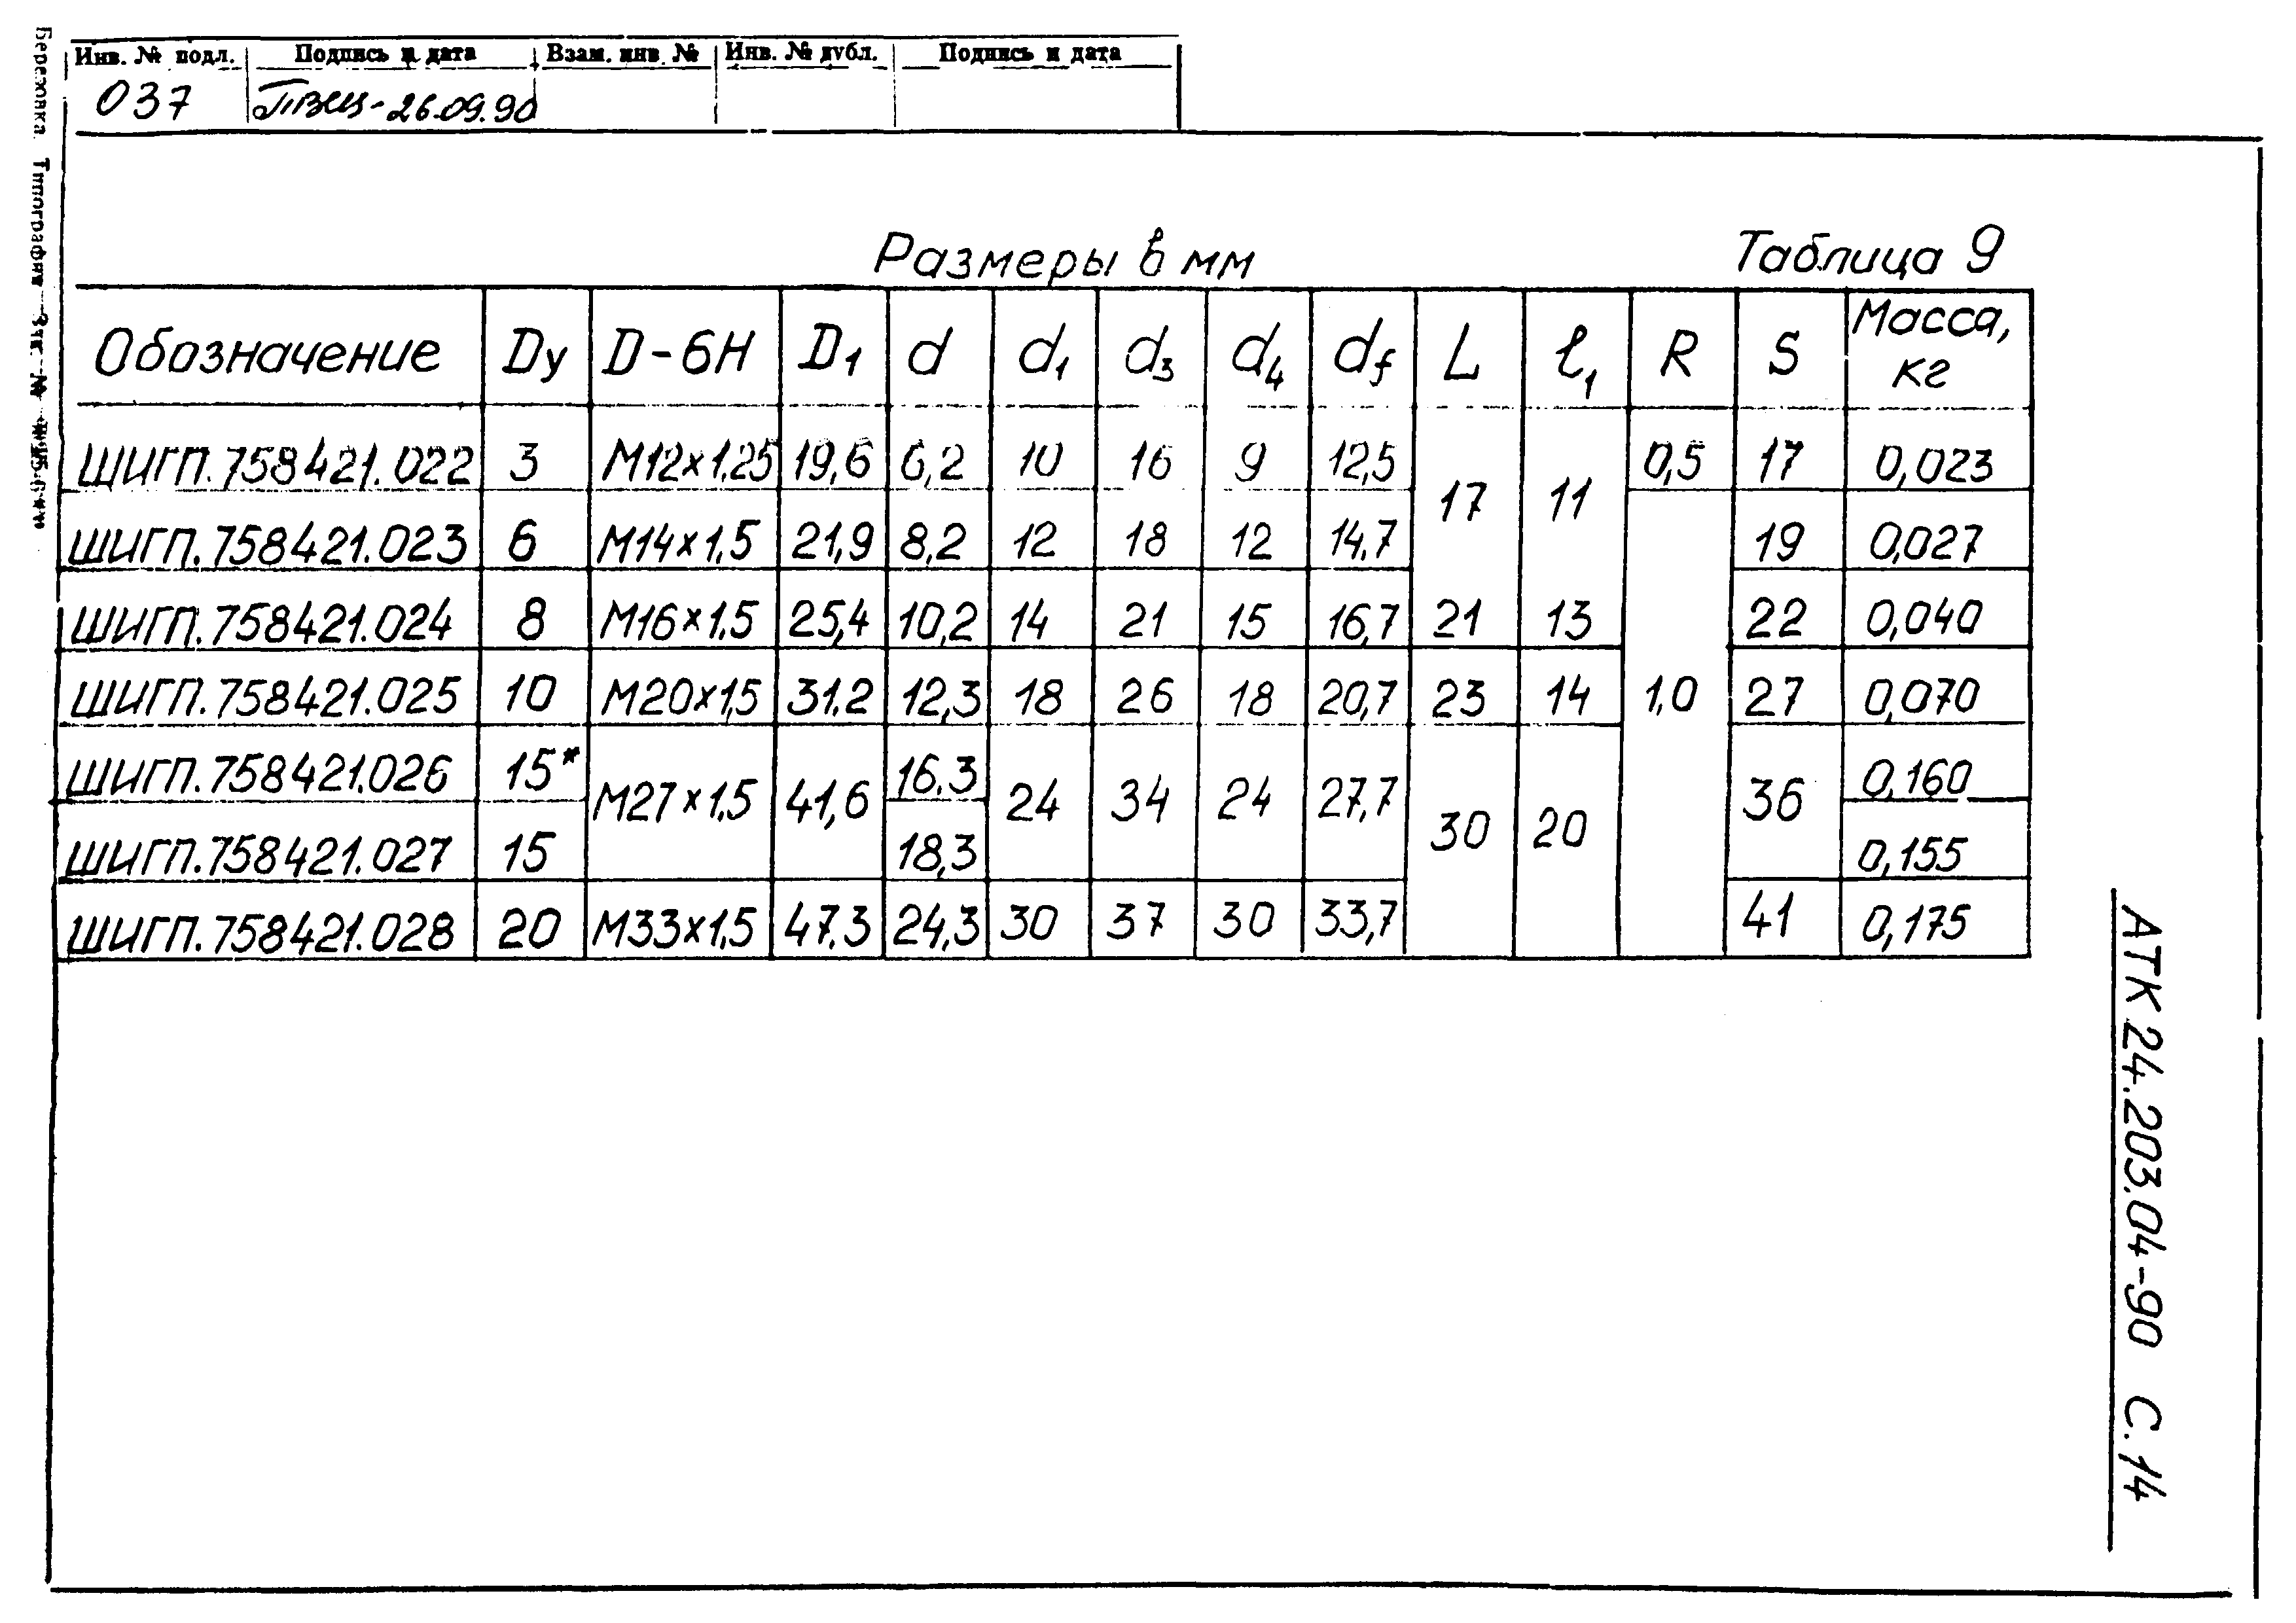 Инв. № подл. Подпись и дата Взам. инв. № Инв. № дубл. Подпись и дата
037 26.09.90
Размеры в мм Таблица 9
Обозначение Dу D-6H D1 d d1 d3 d4 df L l1 R S Масса, кг
ШИГП.758421.022 3 М12×1,25 19,6 6,2 10 16 9 12,5 17 11 0,5 17 0,023
ШИГП.758421.023 6 М14×1,5 21,9 8,2 12 18 12 14,7 19 0,027
ШИГП.758421.024 8 М16×1,5 25,4 10,2 14 21 15 16,7 21 13 22 0,040
ШИГП.758421.025 10 М20×1,5 31,2 12,3 18 26 18 20,7 23 14 1,0 27 0,070
ШИГП.758421.026 15* М27×1,5 41,6 16,3 24 34 24 27,7 30 20 36 0,160
ШИГП.758421.027 15 18,3 0,155
ШИГП.758421.028 20 М33×1,5 47,3 24,3 30 37 30 33,7 41 0,175
АТК 24.203.04-90 С.14
Березовка. Типография Зак. №